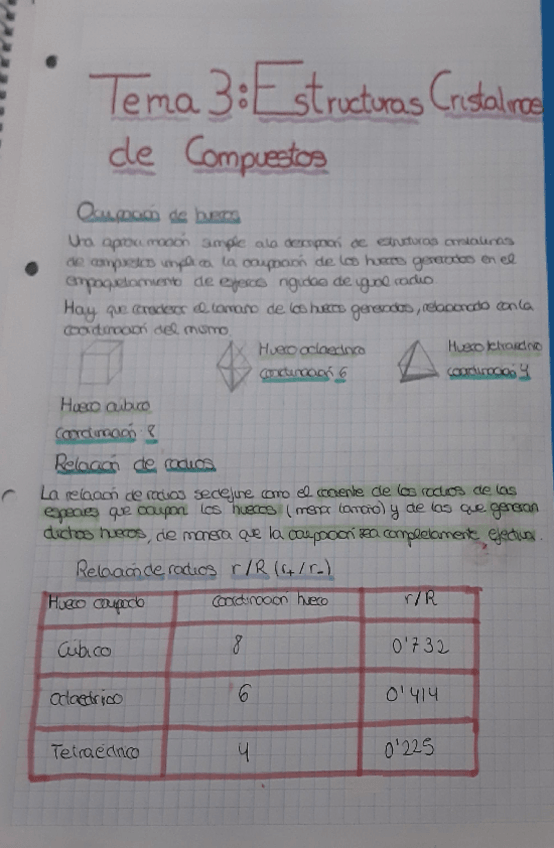 Tema 3: Estructuras Cristalinas
de Compuestos
Ocupación de huecos
Una aproximación simple a la descripción de estructuras cristalinas
de compuestos implica la ocupación de los huecos generados en el
empaquetamiento de esferas rígidas de igual radio.
Hay que considerar el tamaño de los huecos generados, relacionado con la
coordinación del mismo.
Hueco octaédrico
coordinación 6
Hueco tetraédrico
coordinación 4
Hueco cúbico
coordinación 8
Relación de radios
La relación de radios se define como el cociente de los radios de las
especies que ocupan los huecos (menor tamaño) y de las que generan
dichos huecos, de manera que la ocupación sea completamente efectiva.
Relación de radios r/R (r+/r-)
Hueco ocupado coordinación hueco r/R
Cúbico 8 0'732
octaédrico 6 0'414
Tetraédrico 4 0'225